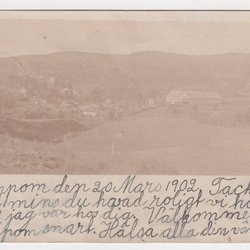 den 20 Mars 1902. Tack
mins du hvad roligt vi h
jag var hos dig. Välkomm
snart. Hälsa alla dina vä